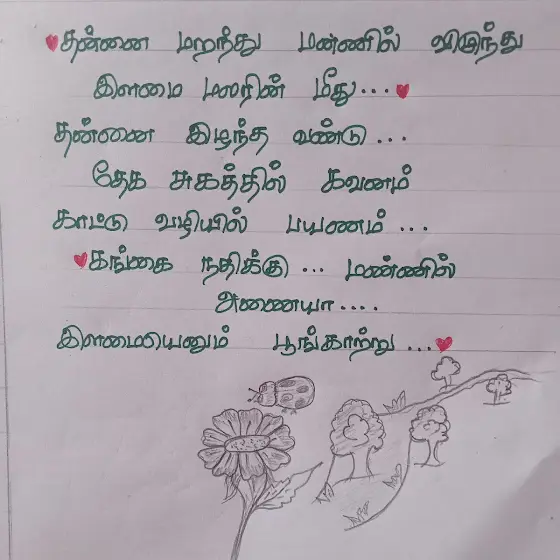 தன்னை மறந்து மண்ணில் விழுந்து
இளமை மலரின் மீது...
தன்னை இழந்த வண்டு...
தேக சுகத்தில் கவனம்
காட்டு வழியில் பயணம்...
கங்கை நதிக்கு... மண்ணில்
அணையா....
இளமையெனும் பூங்காற்று...